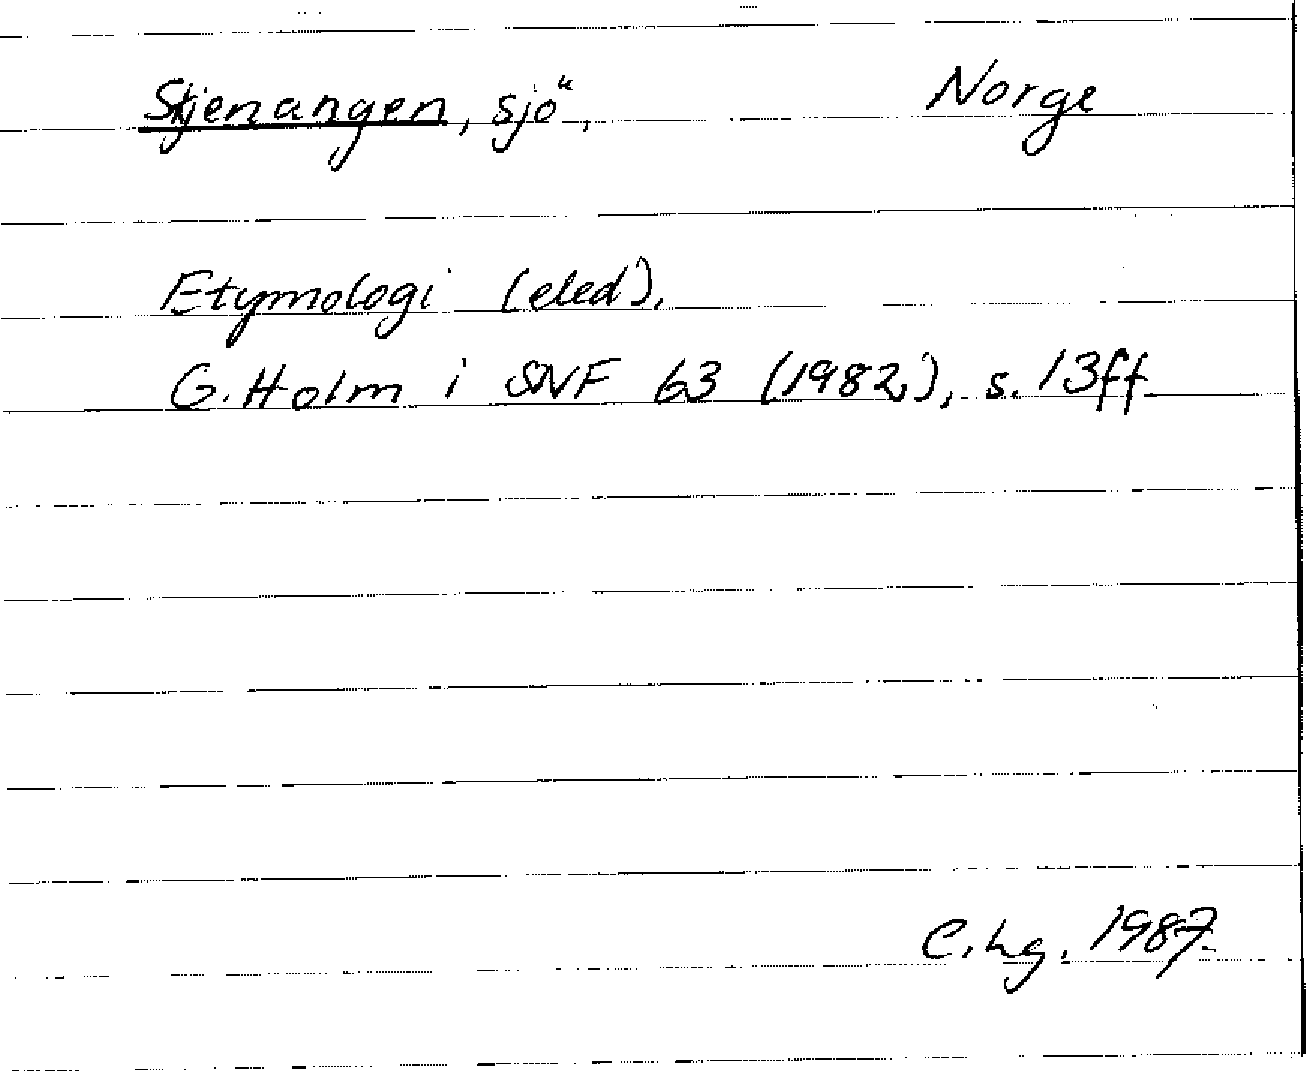 Skjenangen, sjö, Norge
Etymologi (eled).
G. Holm i SNF 63 (1982), s. 13ff
C. Lg. 1987.